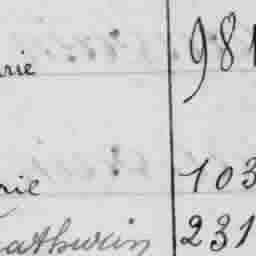 rie 981
rie 103
Mathurin 231